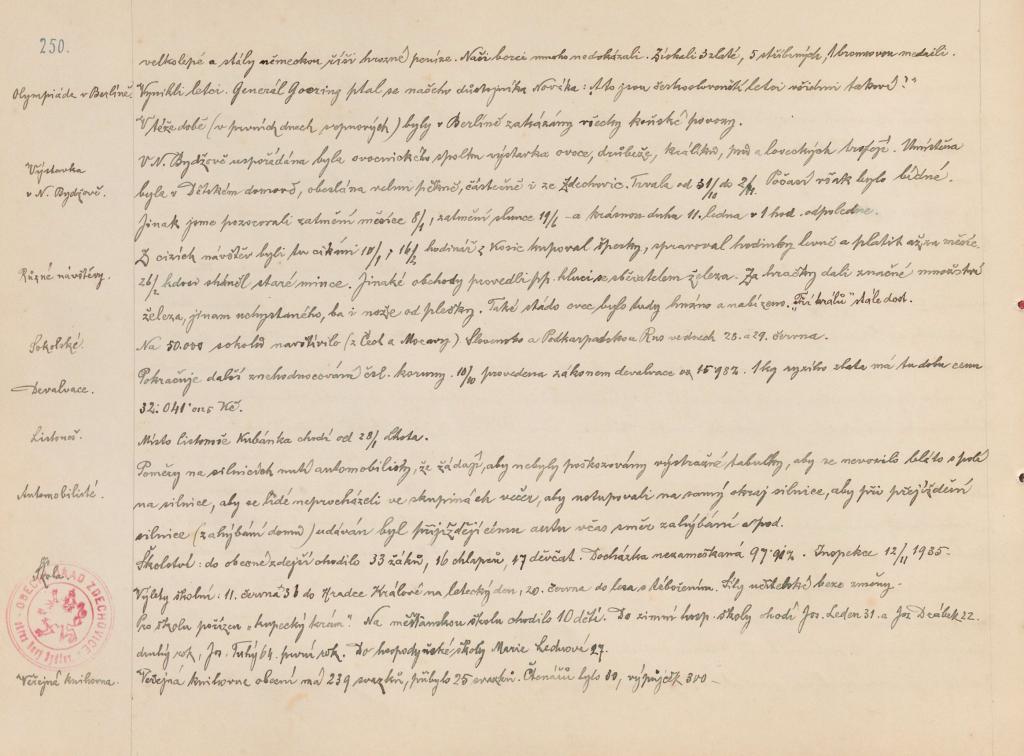 250.
velkolepé a stály německou říši hrozné peníze. Naši borci mnoho nedokázali. Získali 3 zlaté, 5 stříbrných, 1 bronzovou medaili.
Olympiáda v Berlíně. Vynikli letci. Generál Goering ptal se našeho důstojníka Nováka: "A to jsou českoslovenští letci všichni takoví?"
V téže době (v prvních dnech srpnových) byly v Berlíně zakázány všechny koňské povozy.
Výstavka v N. Bydžově. V N. Bydžově uspořádána byla ovocnického spolku výstavka ovoce, drůbeže, králíků, psů a loveckých trofejí. Umístěna
byla v Dětském domově, obeslána velmi pěkně, částečně i ze Zdechovic. Trvala od 31/10 do 2/11. Počasí však bylo bídné.
Jinak jsme pozorovali zatmění měsíce 8/1, zatmění slunce 19/6 a krásnou duhu 11. ledna v 1 hod. odpoledne.
Z cizích návštěv byli tu cikáni 18/1, 16/2 hodinář z Kosic kupoval šperky, spravoval hodinky levně a platit až za měsíc.
Různé návštěvy. 26/2 kdosi sháněl staré mince. Jinaké obchody provedli pp. kluci se sběratelem železa. Za hračky dali značné množství
železa, jinam uchystaného, ba i nože od plečky. Také stádo ovec bylo tudy hnáno a nabízeno. "Tří králů" stále dost.
Sokolské. Na 50.000 sokolů navštívilo (z Čech a Moravy) Slovensko a Podkarpatskou Rus ve dnech 28. a 29. června.
Devalvace. Pokračuje další znehodnocování čsl. koruny. 10/10 provedena zákonem devalvace o 15·98%. 1 kg ryzího zlata má tu dobu cenu
32.041· Kč.
Listonoš. Místo listonoše Kubánka chodí od 28/1 Lhota.
Poměry na silnicích nutí automobilisty, že žádají, aby nebyly poškozovány výstražné tabulky, aby se nevozilo bláto s polí
Automobilisté. na silnice, aby se lidé neprocházeli ve skupinách večer, aby ustupovali na samý okraj silnice, aby při přejíždění
silnice (zahýbání domů) udáván byl přijíždějícímu autu včas směr zahýbání a pod.
Škola. Školství: do obecné zdejší chodilo 33 žáků, 16 chlapců, 17 děvčat. Docházka nezameškaná 97·91%. Inspekce 12/11 1935.
Výlety školní: 11. června 36 do Hradce Králové na letecký den, 20. června do lesa s tábořením. Síly učitelské beze změny.
Pro školu pořízen "kupecký krám". Na měšťanskou školu chodilo 10 dětí. Do zimní hosp. školy chodí Jos. Leden 31. a Jos. Dzábek 22.
druhý rok, Jos. Tuhý 64. první rok. Do hospodyňské školy Marie Lednová 27.
Veřejná knihovna. Veřejná knihovna obecní má 239 svazků, přibylo 25 svazků. Čtenářů bylo 30, výpůjček 300
OBECNÍ ÚŘAD ZDECHOVICE